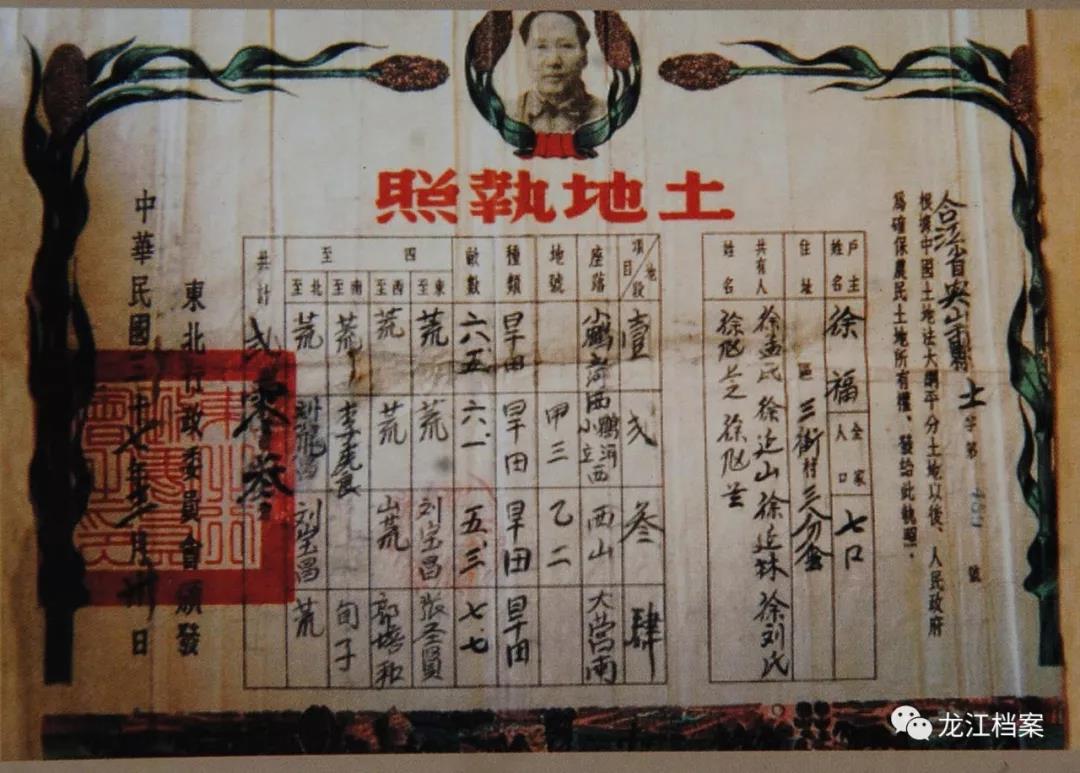 土地執照
合江省
縣 土 字第 號
根據中國土地法大綱平分土地以後、人民政府
為確保農民土地所有權、發給此執照。
戶主姓名 徐福 全家人口 七口
住址 區 三街村
共有人姓名 徐孟氏 徐延山 徐延林 徐刘氏
地段 項目 壹 弍 叁 肆
座落 小鶴立河西 西山 大营南
地號 甲三 乙二
種類 旱田 旱田 旱田 旱田
畝數 六.五 六.一 五.三 七.七
四至
東至 荒 荒 刘宝昌 张圣賢
西至 荒 荒 山荒 郭培和
南至 荒 李虎臣 旬子
北至 荒 刘宝昌 荒
共計
東北行政委員會頒發
中華民國三十七年 月 日
龙江档案